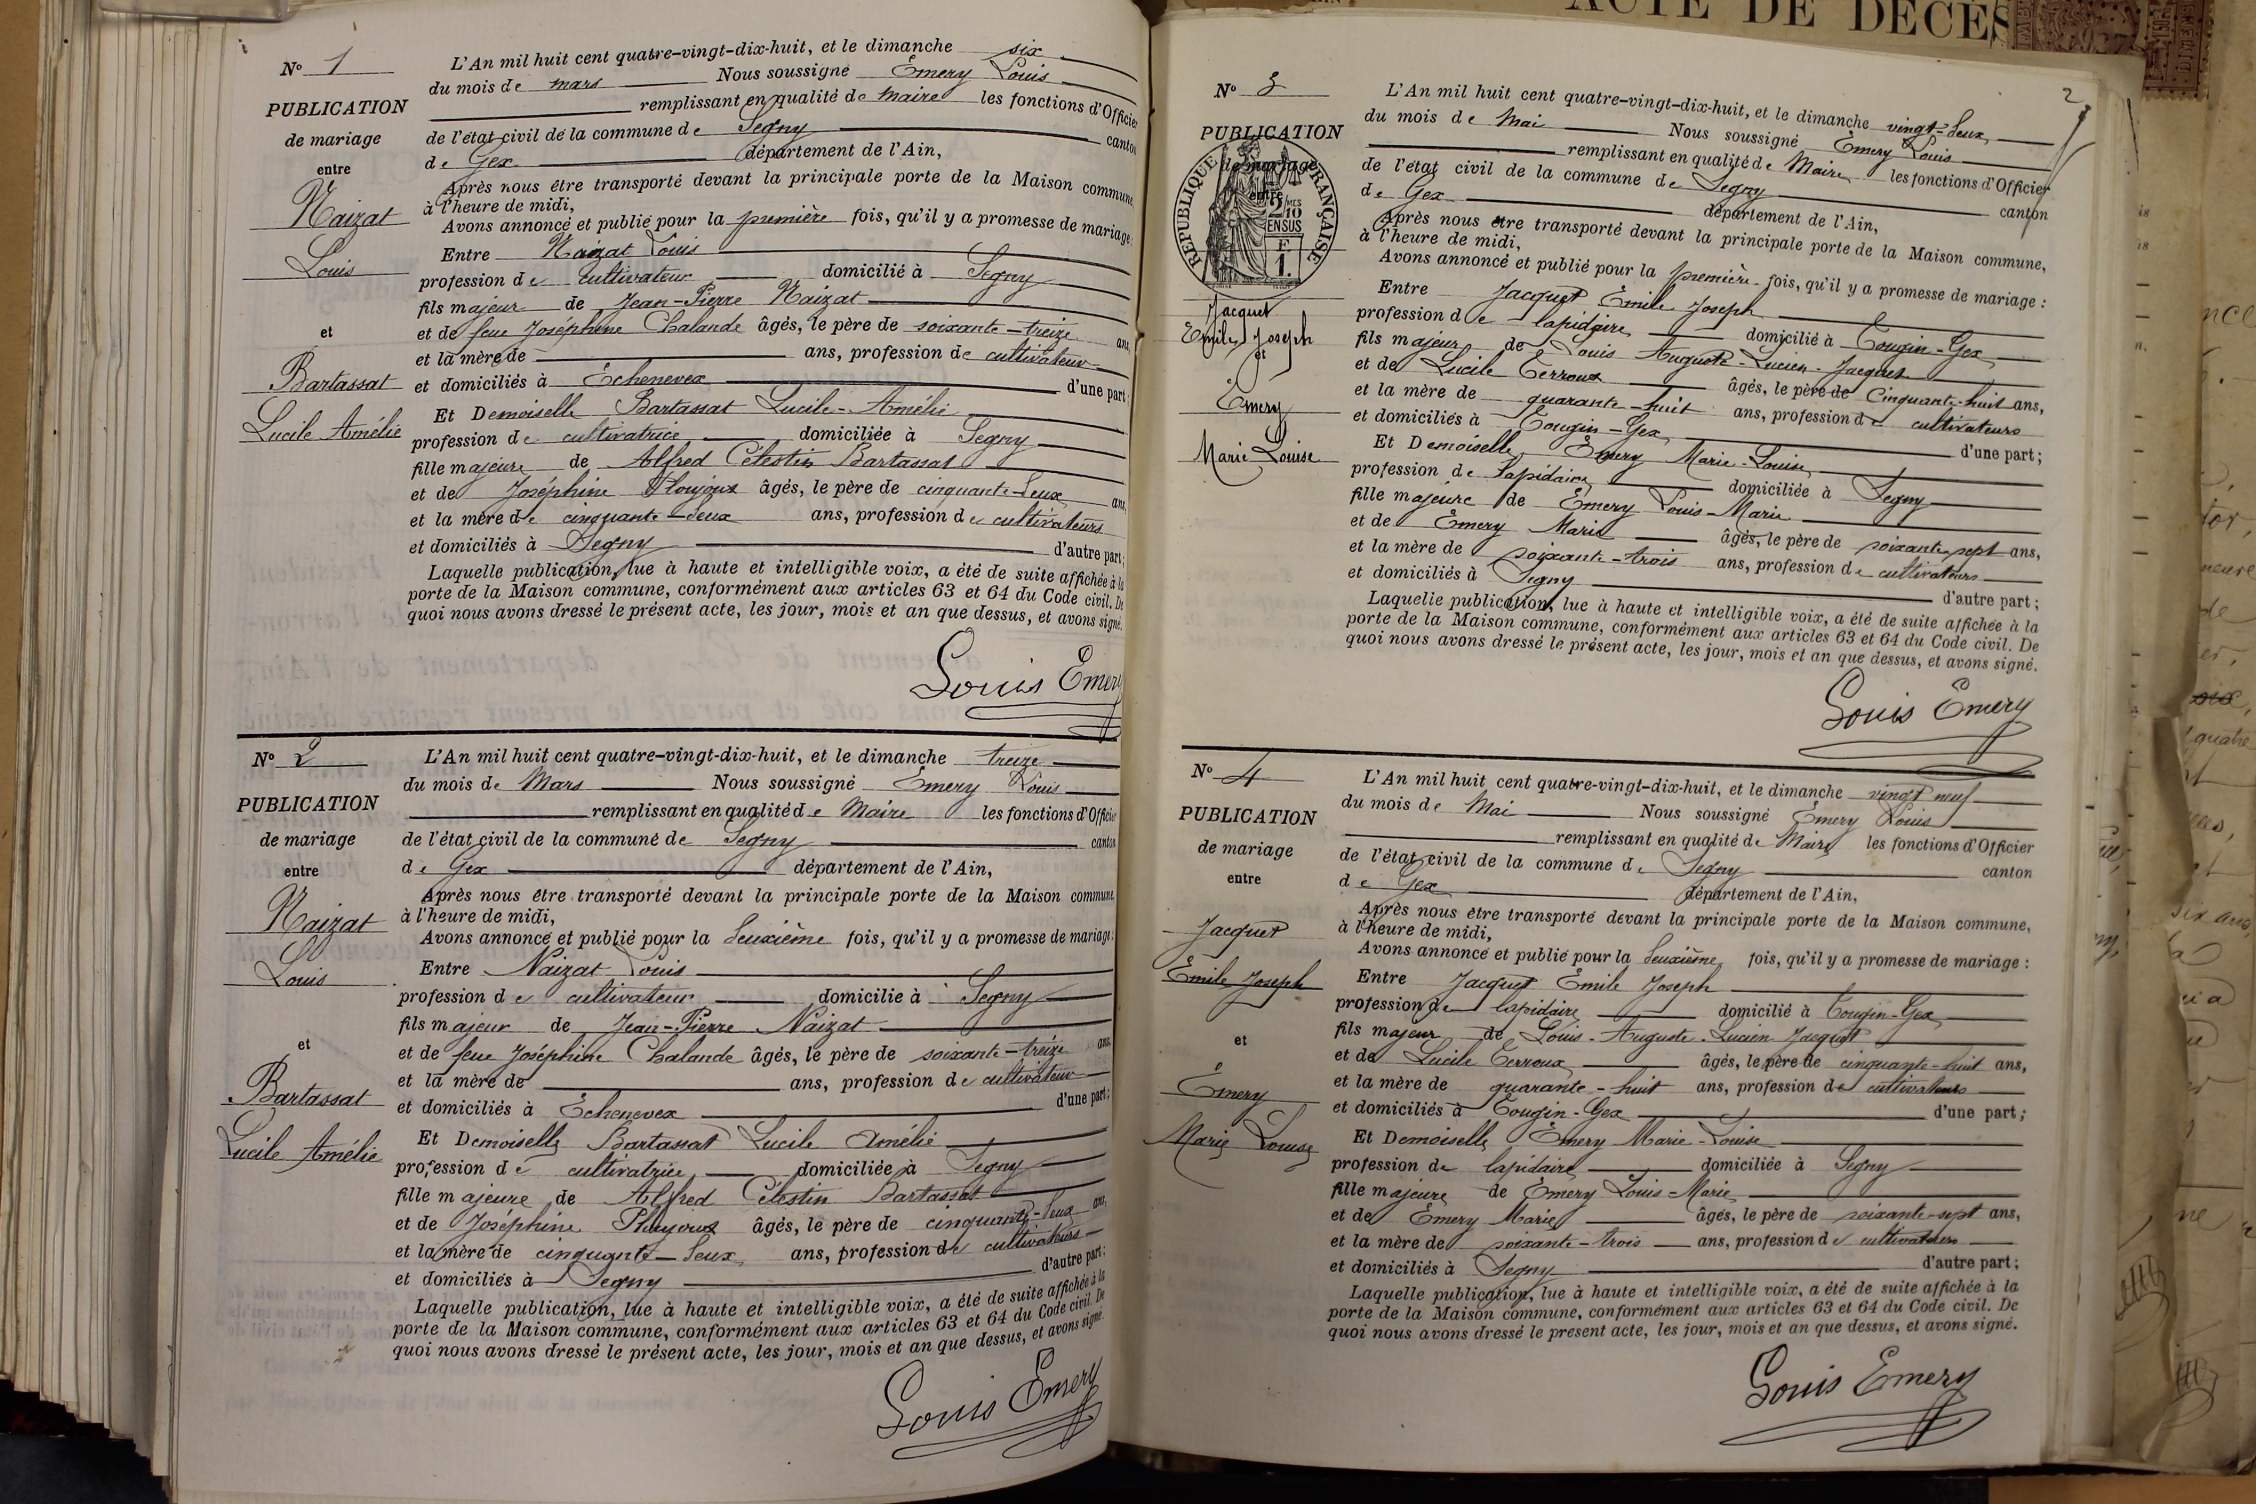 N° 1
PUBLICATION
de mariage
entre
Naizat
Louis
et
Bartassat
Lucile Amélie
L'An mil huit cent quatre-vingt-dix-huit, et le dimanche six
du mois de mars Nous soussigné Emery Louis
remplissant en qualité de maire les fonctions d'Officier
de l'état civil de la commune de Segny canton
de Gex département de l'Ain,
Après nous être transporté devant la principale porte de la Maison commune,
à l'heure de midi,
Avons annoncé et publié pour la première fois, qu'il y a promesse de mariage:
Entre Naizat Louis
profession de cultivateur domicilié à Segny
fils majeur de Jean-Pierre Naizat
et de feue Joséphine Chalande âgés, le père de soixante-treize ans,
et la mère de ans, profession de cultivateur
et domiciliés à Echenevex d'une part
Et Demoiselle Bartassat Lucile-Amélie
profession de cultivatrice domiciliée à Segny
fille majeure de Alfred Célestin Bartassat
et de Joséphine âgés, le père de cinquante-deux ans,
et la mère de cinquante-deux ans, profession de cultivateurs
et domiciliés à Segny d'autre part;
Laquelle publication, lue à haute et intelligible voix, a été de suite affichée à la
porte de la Maison commune, conformément aux articles 63 et 64 du Code civil. De
quoi nous avons dressé le présent acte, les jour, mois et an que dessus, et avons signé.
Louis Emery
N° 2
PUBLICATION
de mariage
entre
Naizat
Louis
et
Bartassat
Lucile Amélie
L'An mil huit cent quatre-vingt-dix-huit, et le dimanche treize
du mois de Mars Nous soussigné Emery Louis
remplissant en qualité de Maire les fonctions d'Officier
de l'état civil de la commune de Segny canton
de Gex département de l'Ain,
Après nous être transporté devant la principale porte de la Maison commune,
à l'heure de midi,
Avons annoncé et publié pour la deuxième fois, qu'il y a promesse de mariage:
Entre Naizat Louis
profession de cultivateur domicilié à Segny
fils majeur de Jean-Pierre Naizat
et de feue Joséphine Chalande âgés, le père de soixante-treize ans
et la mère de ans, profession de cultivateur
et domiciliés à Echenevex d'une part;
Et Demoiselle Bartassat Lucile Amélie
profession de cultivatrice domiciliée à Segny
fille majeure de Alfred Célestin Bartassat
et de Joséphine âgés, le père de cinquante-deux ans,
et la mère de cinquante-deux ans, profession de cultivateurs
et domiciliés à Segny d'autre part;
Laquelle publication, lue à haute et intelligible voix, a été de suite affichée à la
porte de la Maison commune, conformément aux articles 63 et 64 du Code civil. De
quoi nous avons dressé le présent acte, les jour, mois et an que dessus, et avons signé.
Louis Emery
ACTE DE DÉCÈS
2
N° 3
PUBLICATION
de mariage
entre
REPUBLIQUE FRANÇAISE
2 MES
10
EN SUS
F
1.
Jacquet
Emile Joseph
et
Emery
Marie Louise
L'An mil huit cent quatre-vingt-dix-huit, et le dimanche vingt-deux
du mois de Mai Nous soussigné Emery Louis
remplissant en qualité de Maire les fonctions d'Officier
de l'état civil de la commune de Segny canton
de Gex département de l'Ain,
Après nous être transporté devant la principale porte de la Maison commune,
à l'heure de midi,
Avons annoncé et publié pour la première fois, qu'il y a promesse de mariage:
Entre Jacquet Emile Joseph
profession de lapidaire domicilié à Tougin-Gex
fils majeur de Louis Auguste-Lucien-Jacquet
et de Lucile Terroux âgés, le père de cinquante-huit ans,
et la mère de quarante-huit ans, profession de cultivateurs
et domiciliés à Tougin-Gex d'une part;
Et Demoiselle Emery Marie-Louise
profession de lapidaire domiciliée à Segny
fille majeure de Emery Louis-Marie
et de Emery Marie âgés, le père de soixante-sept ans,
et la mère de soixante-trois ans, profession de cultivateurs
et domiciliés à Segny d'autre part;
Laquelle publication, lue à haute et intelligible voix, a été de suite affichée à la
porte de la Maison commune, conformément aux articles 63 et 64 du Code civil. De
quoi nous avons dressé le présent acte, les jour, mois et an que dessus, et avons signé.
Louis Emery
N° 4
PUBLICATION
de mariage
entre
Jacquet
Emile Joseph
et
Émery
Marie Louise
L'An mil huit cent quatre-vingt-dix-huit, et le dimanche vingt neuf
du mois de Mai Nous soussigné Emery Louis
remplissant en qualité de Maire les fonctions d'Officier
de l'état civil de la commune de Segny canton
de Gex département de l'Ain,
Après nous être transporté devant la principale porte de la Maison commune,
à l'heure de midi,
Avons annoncé et publié pour la deuxième fois, qu'il y a promesse de mariage:
Entre Jacquet Emile Joseph
profession de lapidaire domicilié à Tougin-Gex
fils majeur de Louis-Auguste-Lucien Jacquet
et de Lucile Terroux âgés, le père de cinquante-huit ans,
et la mère de quarante-huit ans, profession de cultivateurs
et domiciliés à Tougin-Gex d'une part;
Et Demoiselle Emery Marie-Louise
profession de lapidaire domiciliée à Segny
fille majeure de Emery Louis-Marie
et de Emery Marie âgés, le père de soixante-sept ans,
et la mère de soixante-trois ans, profession de cultivateurs
et domiciliés à Segny d'autre part;
Laquelle publication, lue à haute et intelligible voix, a été de suite affichée à la
porte de la Maison commune, conformément aux articles 63 et 64 du Code civil. De
quoi nous avons dressé le présent acte, les jour, mois et an que dessus, et avons signé.
Louis Emery